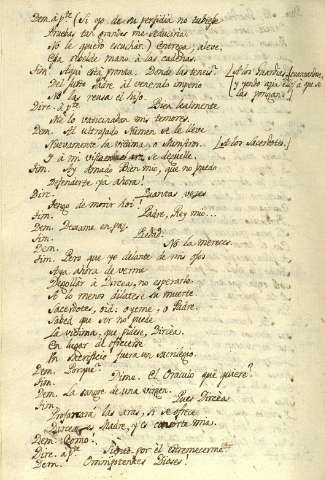 Dem. à pte. (Si yo de su perfidia no tubiese
Pruebas tan grandes me seduciria.
No le quiero escuchar.) Entrega, aleve,
Esa rebelde mano à las cadenas.
Tim. Aqui está pronta. Donde las tienes?
Del justo Padre al venerado imperio
No las reusa el hijo.
[A los Guardias
[y yendo
Dirc. à pte. Bien lealmente
Me lo vaticinaban mis temores.
Dem. Al ultrajado Numen se le lleve
Nuevamente la victima, o Ministros. [A los Sacerdotes.
Y à mi vista en el ara se deguelle.
Tim. Ay Amado Bien mio, que no puedo
Defenderte ya ahora!
Dirc. Quantas veces
Tengo de morir hoi!
Tim. Padre, Rey mio...
Dem. Dexame en paz.
Tim. Piedad.
Dem. No la mereces.
Tim. Pero que yo delante de mis ojos
Aya ahora de verme
Degollar à Dircea, no esperarlo.
A lo menos dilatese su muerte
Sacerdotes, oid: oyeme, o Padre.
Sabed que ser no puede
La victima, que piden, Dircea.
En lugar de ofrecerse
Un Sacrificio fuera un sacrilego.
Dem. Porque?
Tim. Dime. El Oraculo què quiere?
Dem. La sangre de una virgen.
Tim. Pues Dircea
Profanará las aras, si se ofrece
Dircea es Madre, y es consorte mia.
Dem. Como!
Dirc. à pte. por èl estremecerme.
Dem. Omnipotentes Dioses!